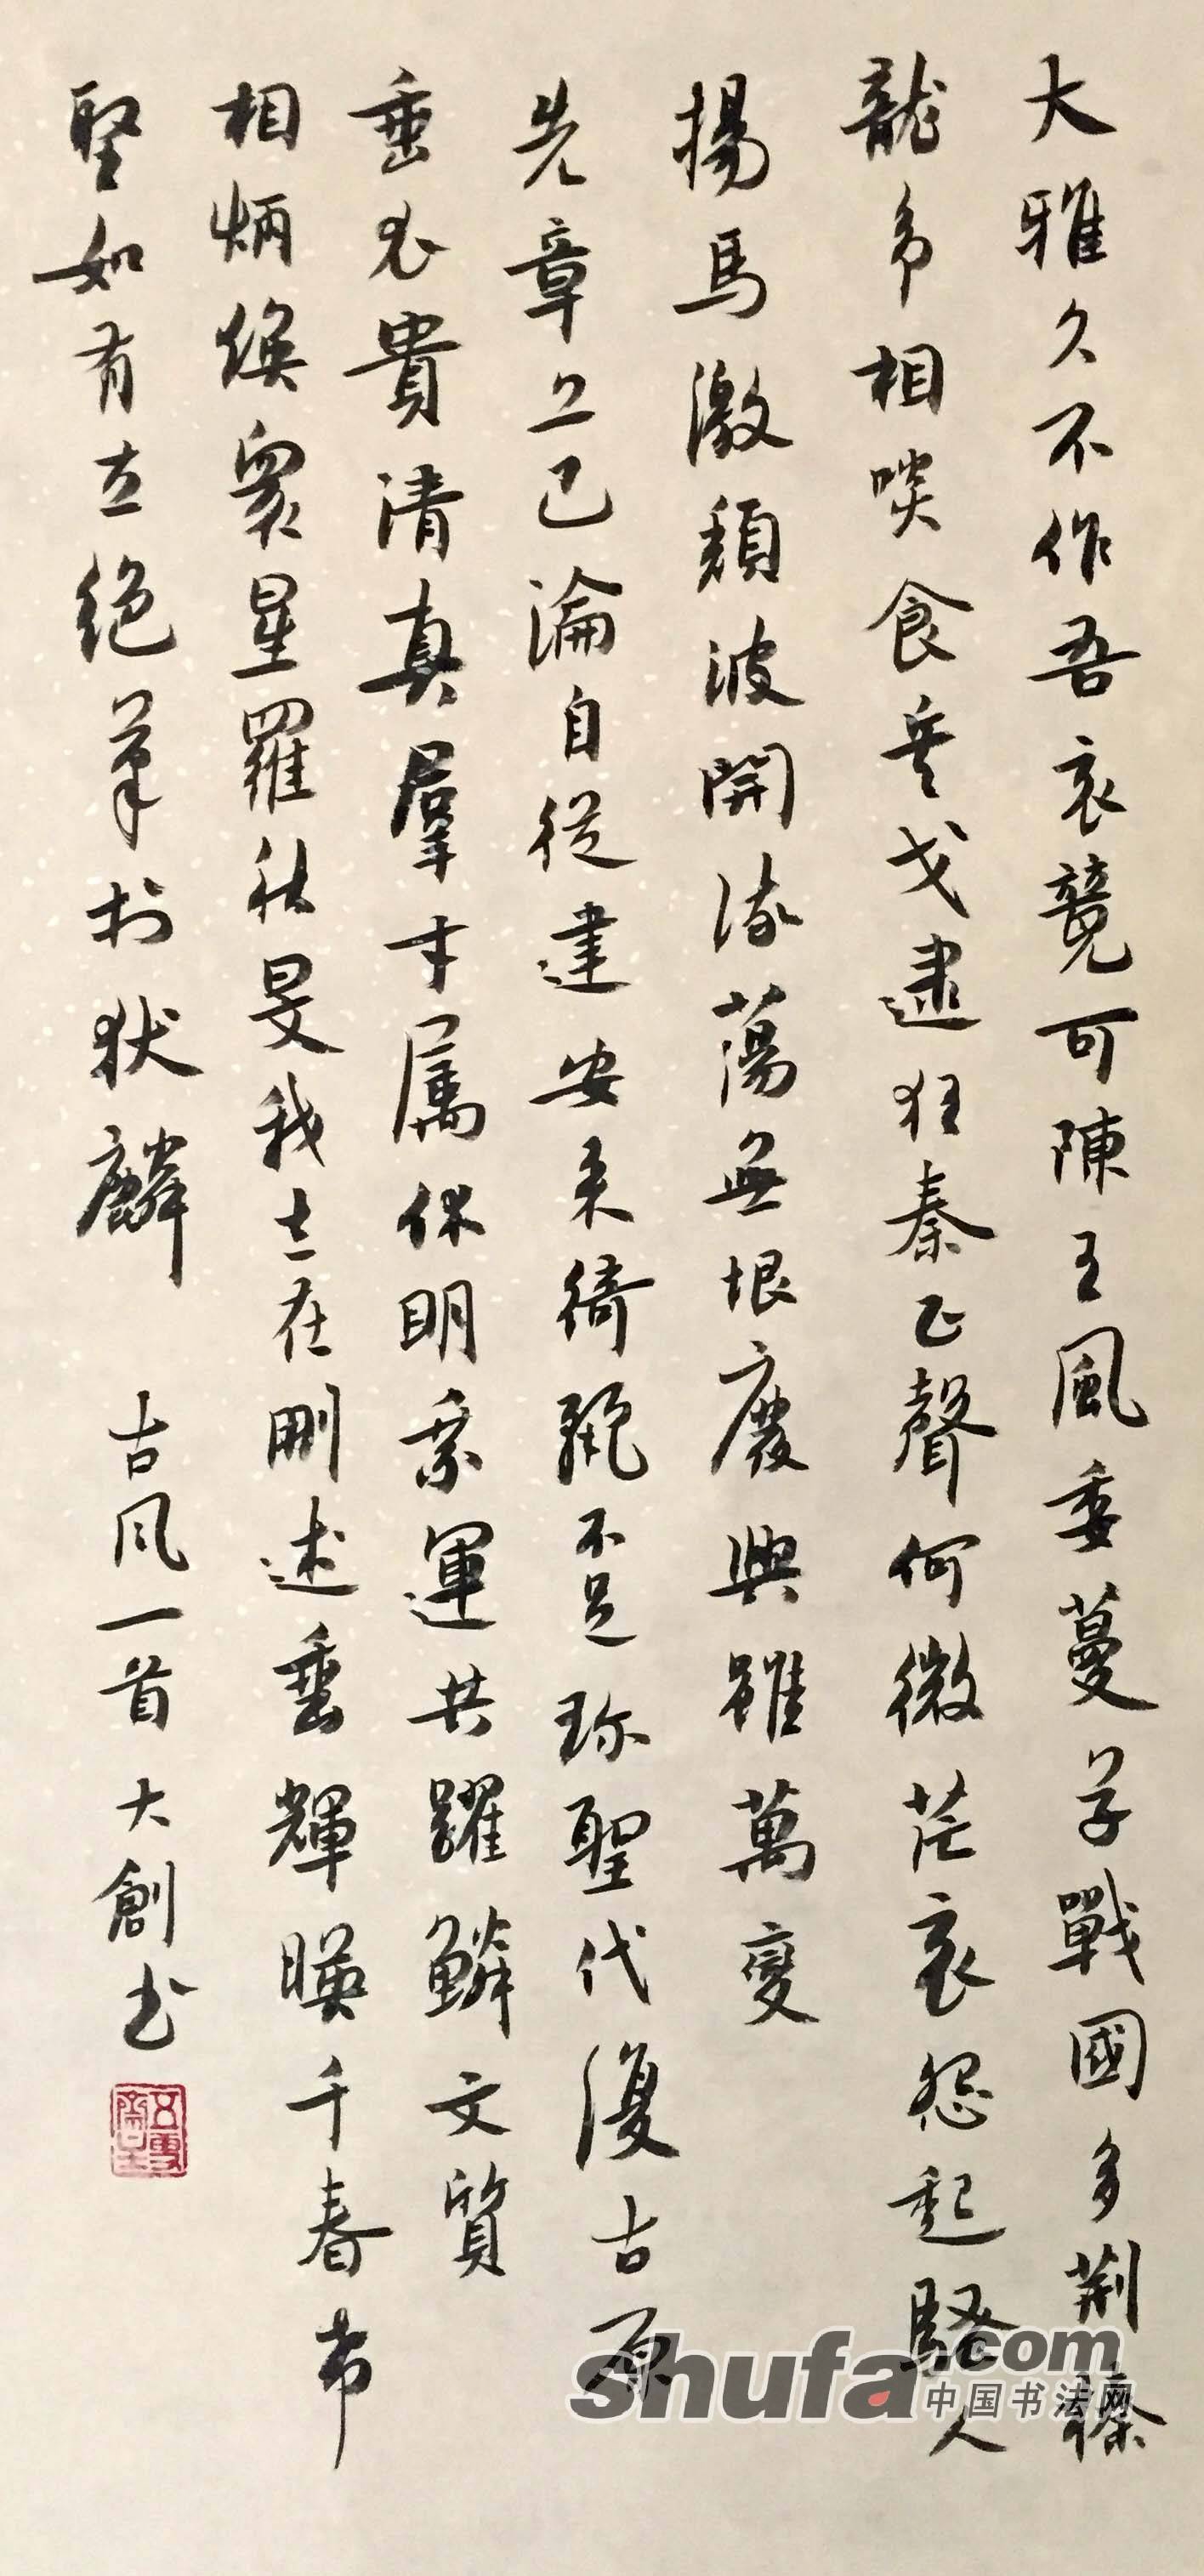 大雅久不作吾衰竟可陳王風委蔓草戰國多荊榛
龍虎相啖食兵戈逮狂秦正聲何微茫哀怨起騷人
揚馬激頹波開流蕩無垠廢興雖萬變
先章亦已淪自從建安來綺麗不足珎聖代復古原
垂衣貴清真羣才屬休明乘運共躍鱗文質
相炳煥衆星羅秋旻我志在刪述垂輝暎千春希
聖如有立絕筆於獲麟 古风一首大創书
shufa.com
中国书法网